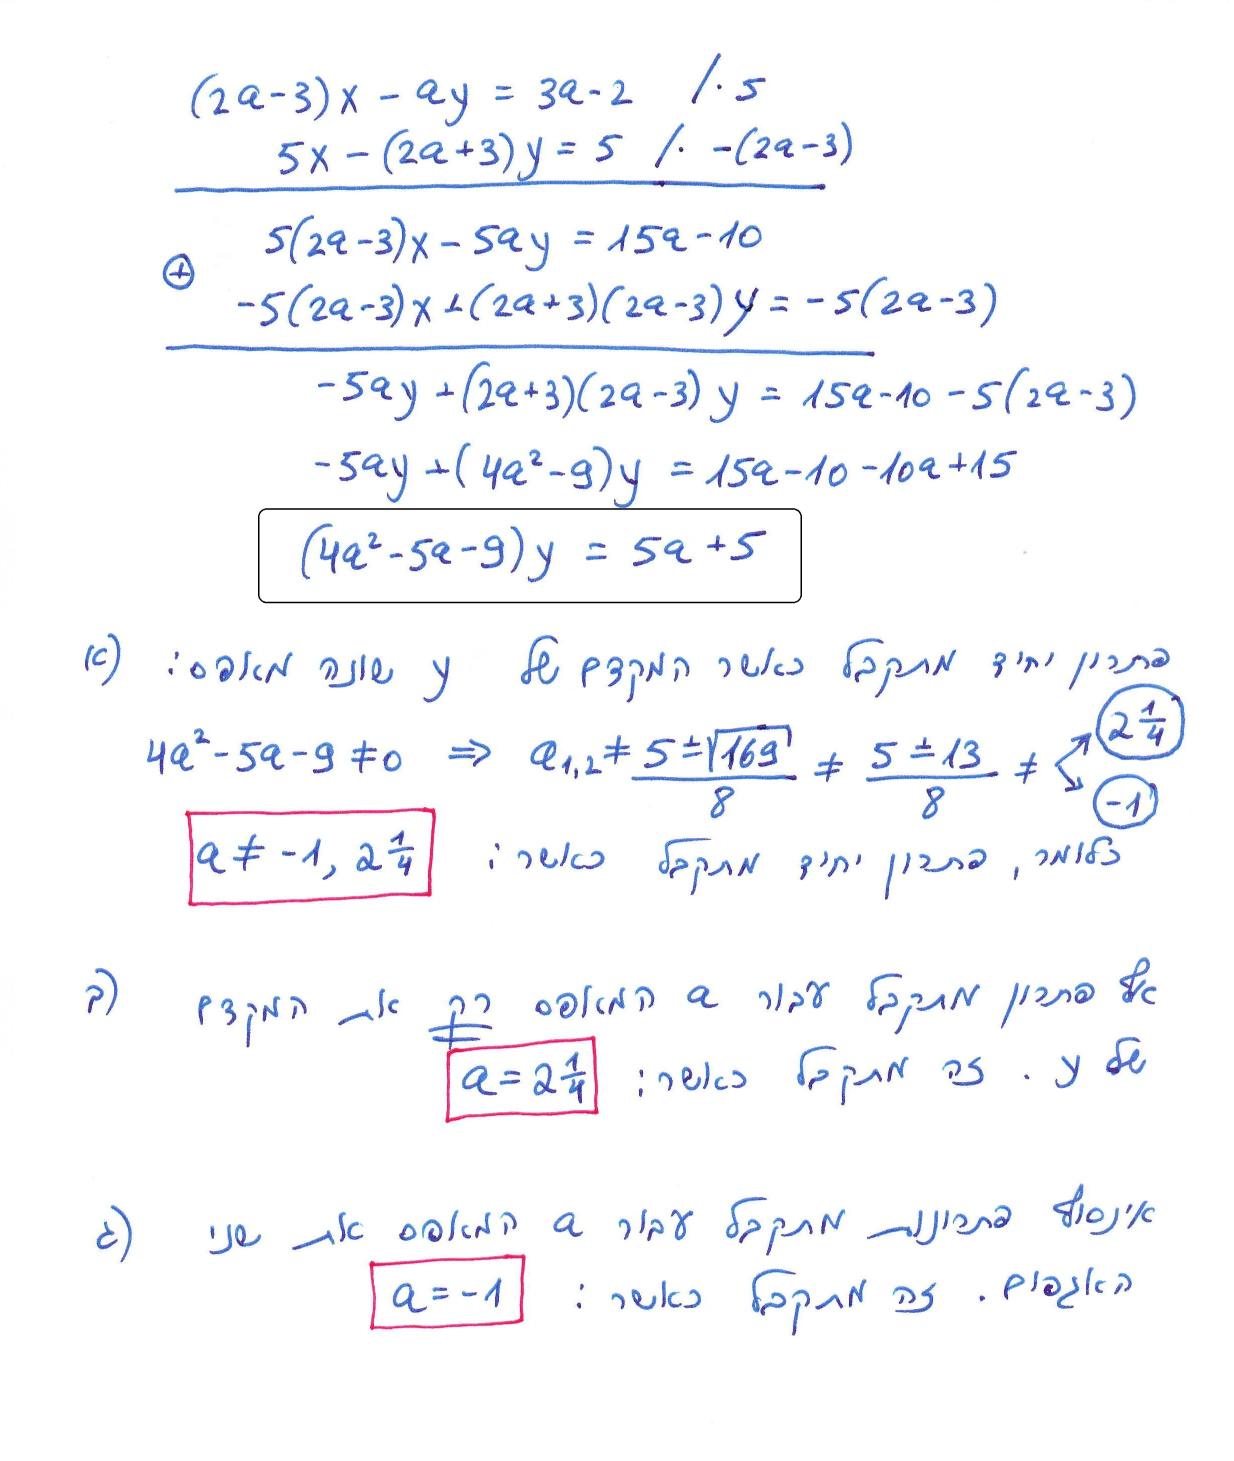 (2a-3)x - ay = 3a-2 /·5
5x - (2a+3)y = 5 /· -(2a-3)
5(2a-3)x - 5ay = 15a-10
⊕
-5(2a-3)x + (2a+3)(2a-3)y = -5(2a-3)
-5ay + (2a+3)(2a-3)y = 15a-10-5(2a-3)
-5ay + (4a²-9)y = 15a-10-10a+15
(4a²-5a-9)y = 5a+5
א) פתרון יחיד מתקבל כאשר המקדם של y שונה מאפס:
4a²-5a-9≠0 ⇒ a₁,₂ ≠ (5±√169)/8 ≠ (5±13)/8 ≠ 2 1/4, -1
כלומר, פתרון יחיד מתקבל כאשר: a ≠ -1, 2 1/4
ב) אף פתרון מתקבל עבור a המאפס רק את המקדם
של y. זה מתקבל כאשר: a = 2 1/4
ג) אינסוף פתרונות מתקבל עבור a המאפס את שני
האגפים. זה מתקבל כאשר: a = -1